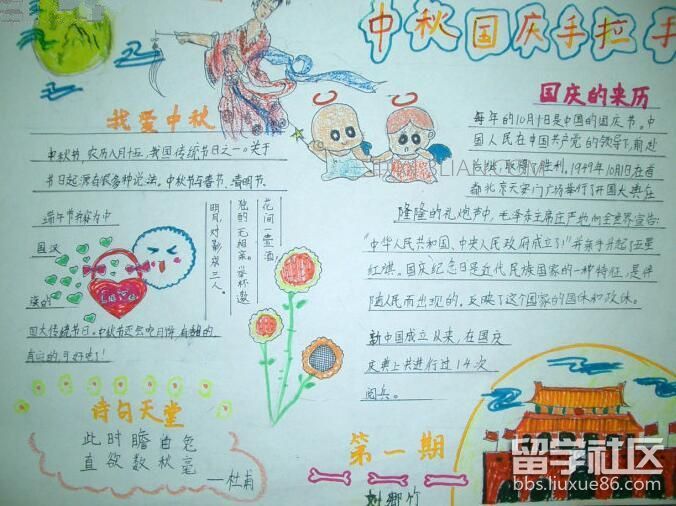 中秋国庆手拉手
我爱中秋
中秋节,农历八月十五,我国传统节日之一。关于
节日起源有很多种说法。中秋节与春节、清明节、
端午节并称为中
国汉
族的
四大传统节日。中秋节还会吃月饼,
真的,
花间一壶酒,
独酌无相亲。举杯邀
明月,对影成三人。
Love
诗句天堂
此时瞻白兔
直欲数秋毫
——杜甫
国庆的来历
每年的10月1日是中国的国庆节。中
国人民在中国共产党的领导下,前赴
后继,取得了胜利。1949年10月1日在首
都北京天安门广场举行了开国大典。在
隆隆的礼炮声中,毛泽东主席庄严地向全世界宣告:
“中华人民共和国、中央人民政府成立了!”并亲手升起了五星
红旗。国庆纪念日是近代民族国家的一种特征,是伴
随人民而出现的。反映了这个国家的国体和政体。
新中国成立以来,在国庆
庆典上共进行过14次
阅兵。
第一期
留学社区
bbs.liuxue86.com